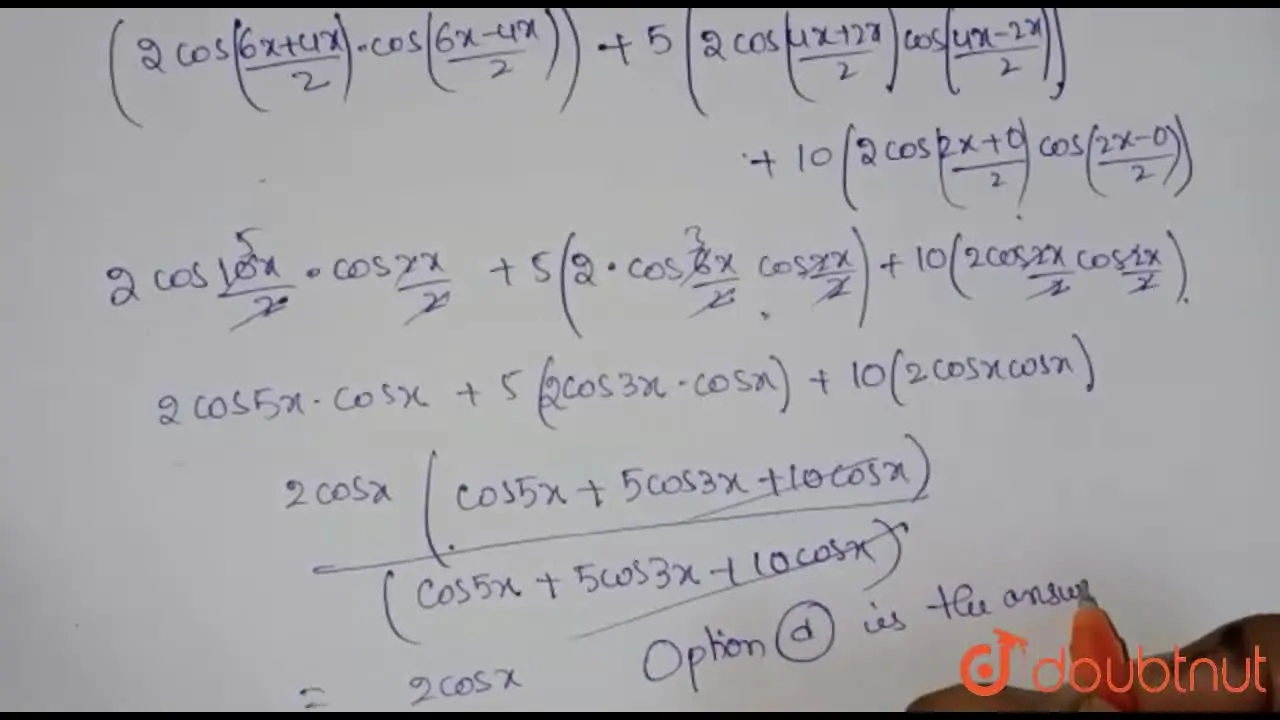 (2cos(6x+4x/2)·cos(6x-4x/2)) + 5(2cos(4x+2x/2)cos(4x-2x/2))
+ 10(2cos(2x+0/2)cos(2x-0/2))
2cos10x/2 5·cos2x/2 + 5(2·cos6x/2 3 cos2x/2) + 10(2cos2x/2cos2x/2).
2cos5x·cosx + 5(2cos3x·cosx) + 10(2cosxcosx)
2cosx (cos5x + 5cos3x + 10cosx)
(cos5x + 5cos3x + 10cosx)
= 2cosx Option (d) is the answe
doubtnut